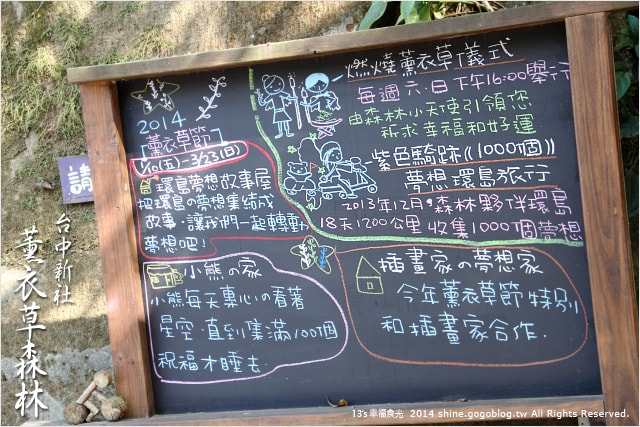 2014
薰衣草節
1/10(五)-3/23(日)
環島夢想故事屋
把環島の夢想集結成
故事,讓我們一起轉動
夢想吧!
小熊の家
小熊每天專心の看著
星空,直到集滿100個
祝福才睡去.
燃燒薰衣草儀式
每週六.日下午16:00舉行
由森林小天使引領您
祈求幸福和好運
紫色騎跡((1000個))
夢想環島旅行
2013年12月,森林夥伴環島
18天1200公里 收集1000個夢想
插畫家の夢想家
今年薰衣草節特別
和插畫家合作.
請
台中新社
薰衣草森林
13's 幸福食光 2014 shine.gogoblog.tw All Rights Reserved.